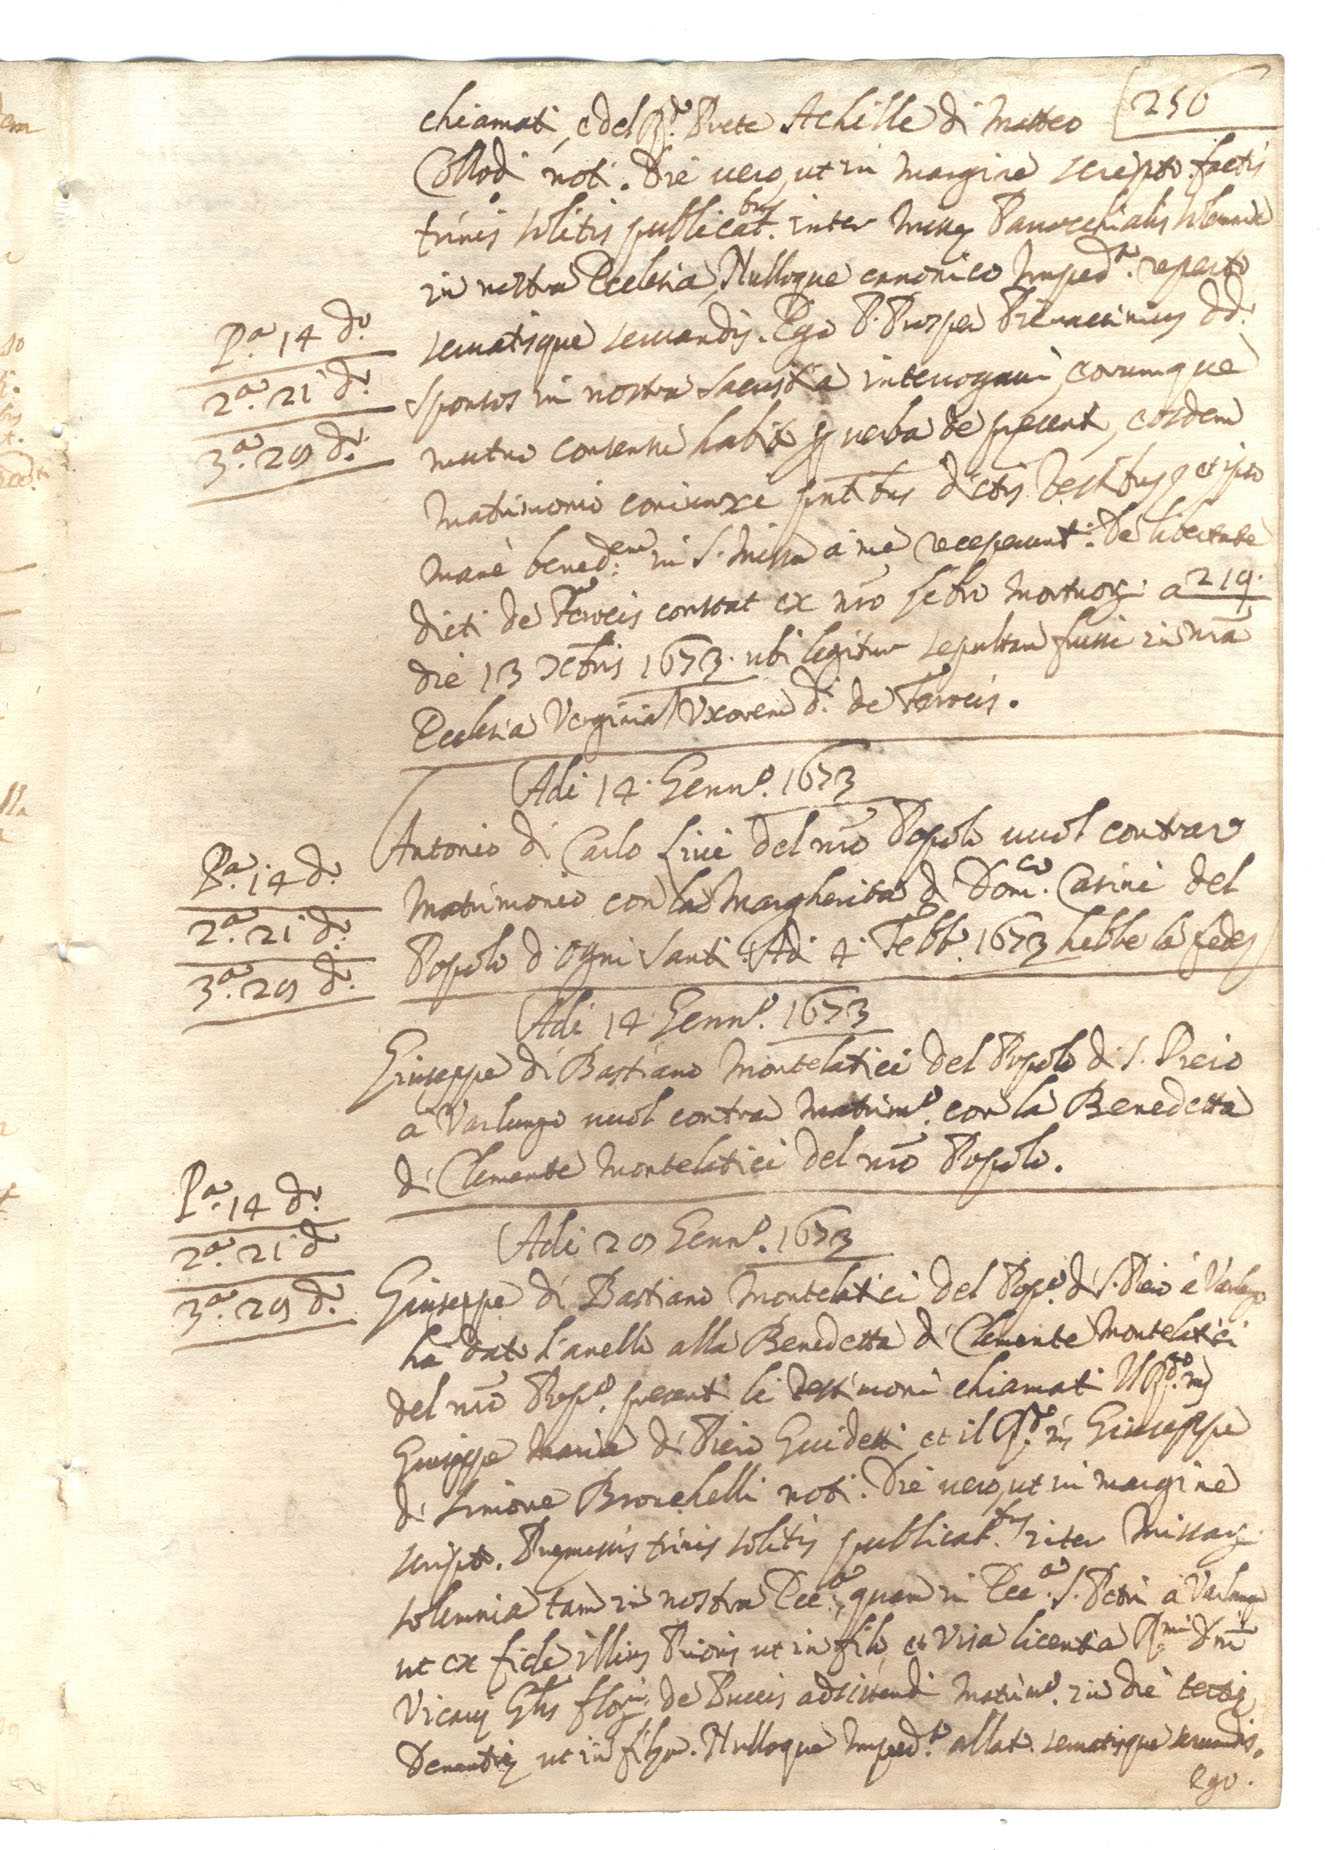 256
chiamati, e del R.do Prete Achille di Matteo
Collodi noti. Die uero, ut in margine scripto factis
trinis solitis publicat.bus inter Missæ Parocchialis solemnia
in nostra Ecclesia, Nulloque canonico Imped.o reperto
seruatisque seruandis. Ego P. Prosper d.d.
sponsos in nostra sacristia interrogaui, eorumque
mutuo consensu habito p uerba de presenti, eosdem
matrimonio coniunxi pntibus dictis testibus, et ipso
mane bened.em in S. Missa a me receperunt. De libertate
dicti de constat ex nro libro mortuor. a 219.
die 13 1673. ubi legitur sepultam fuisse in nra
Ecclesia Verginia Uxorem d.i de
P.a 14 d.o
2.a 21 d.o
3.a 29 d.o
Adi 14. Genn.o 1673
Antonio di Carlo Liui del nro Popolo uuol contrar
Matrimonio con la Margherita di Dom.co Carini del
Popolo d'Ogni Santi. Adi 4 Febb.o 1673 hebbe la fede
P.a 14 d.o
2.a 21 d.o
3.a 29 d.o
Adi 14 Genn.o 1673
Giuseppe di Bastiano Montelatici del Popolo di S. Piero
a Varlungo uuol contra Matrim.o con la Benedetta
di Clemente Montelatici del nro Popolo.
P.a 14 d.o
2.a 21 d.o
3.a 29 d.o
Adi 29 Genn.o 1673
Giuseppe di Bastiano Montelatici del Pop.o di S. Piero a Varlungo
ha dato l'anello alla Benedetta di Clemente Montelatici
del nro Pop.o presenti li testimoni chiamati Il R.do
Giuseppe Maria di Piero Guidetti et il R.do Giuseppe
di Simone Bronchelli noti. Die uero, ut in margine
scripto. Premissis trinis solitis publicat.bus inter Missar.
solemnia tam in nostra Ecc.a, quam in Ecc.a S. Petri a Varlungo
ut ex fide illius Prioris ut in filo, et uisa licentia Dni
Vicarij Glis de Puccis adsistendi matrim.o in die tertiæ
Denuntiæ ut in filza. Nulloque Imped.o allat. seruatisque seruandis.
Ego.